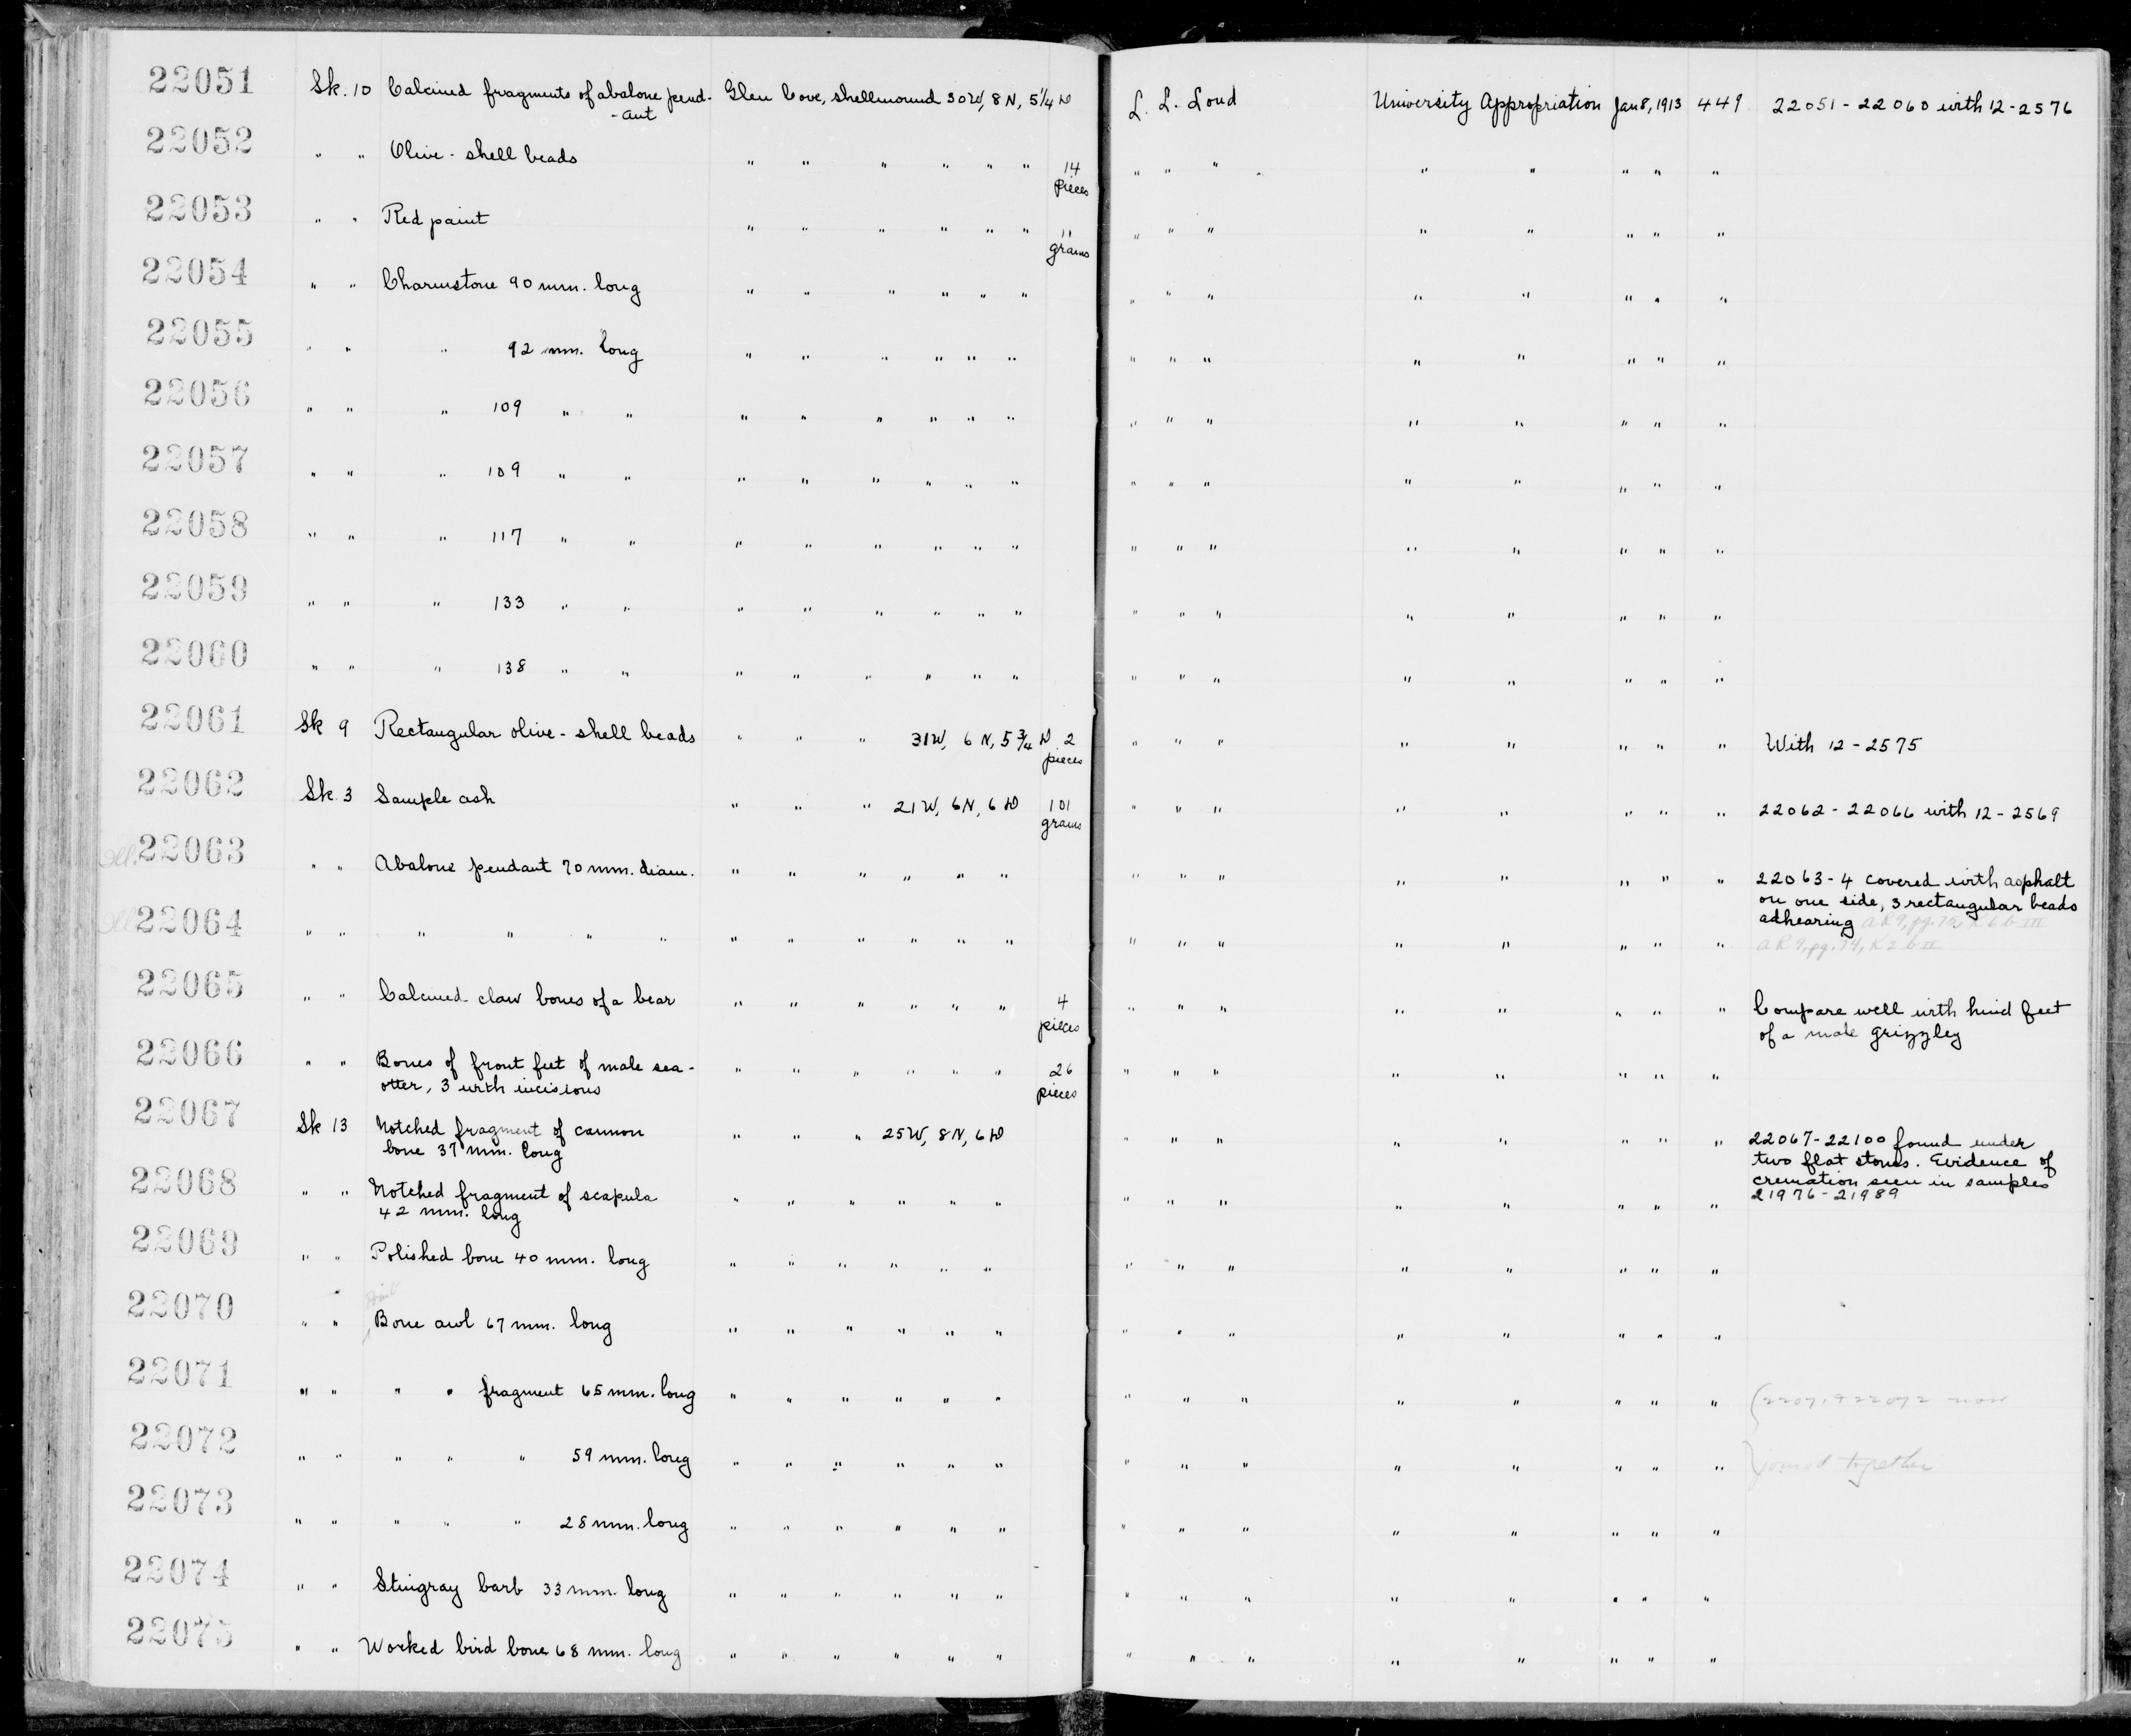 22051 Sk. 10 Calcined fragments of abalone pend- Glen Cove, shellmound 30W, 8N, 5 1/4 D L. L. Loud University Appropriation Jan 8, 1913 449 22051 - 22060 with 12-2576
-ant
22052 " " Olive - shell beads " " " " " " 14 " " " " " " " "
pieces
22053 " " Red paint " " " " " " 11 " " " " " " " "
grams
22054 " " Charmstone 90 mm. long " " " " " " " " " " " " " "
22055 " " " 92 mm. long " " " " " " " " " " " " " "
22056 " " " 109 " " " " " " " " " " " " " " " "
22057 " " " 109 " " " " " " " " " " " " " " " "
22058 " " " 117 " " " " " " " " " " " " " " " "
22059 " " " 133 " " " " " " " " " " " " " " " "
22060 " " " 138 " " " " " " " " " " " " " " " "
22061 Sk 9 Rectangular olive - shell beads " " " 31W, 6 N, 5 3/4 D 2 " " " " " " " " With 12 - 2575
pieces
22062 Sk. 3 Sample ash " " " 21W, 6N, 6 D 101 " " " " " " " " 22062 - 22066 with 12 - 2569
grams
Ill. 22063 " " Abalone pendant 70 mm. diam. " " " " " " " " " " " " " " 22063 - 4 covered with asphalt
on one side, 3 rectangular beads
adhearing
Ill. 22064 " " " " " " " " " " " " " " " " " " " "
22065 " " Calcined claw bones of a bear " " " " " " 4 " " " " " " " " Compare well with hind feet
pieces of a male grizzley
22066 " " Bones of front feet of male sea- " " " " " " 26 " " " " " " " "
otter, 3 with incisions pieces
22067 Sk 13 Notched fragment of cannon " " " 25W, 8N, 6 D " " " " " " " " 22067 - 22100 found under
bone 37 mm. long two flat stones. Evidence of
cremation seen in samples
21976 - 21989
22068 " " Notched fragment of scapula " " " " " " " " " " " " " "
42 mm. long
22069 " " Polished bone 40 mm. long " " " " " " " " " " " " " "
22070 " " Bone awl 67 mm. long " " " " " " " " " " " " " "
22071 " " " " fragment 65 mm. long " " " " " " " " " " " " " " (22071 + 22072 now
22072 " " " " " 59 mm. long " " " " " " " " " " " " " " joined together
22073 " " " " " 28 mm. long " " " " " " " " " " " " " "
22074 " " Stingray barb 33 mm. long " " " " " " " " " " " " " "
22075 " " Worked bird bone 68 mm. long " " " " " " " " " " " " " "